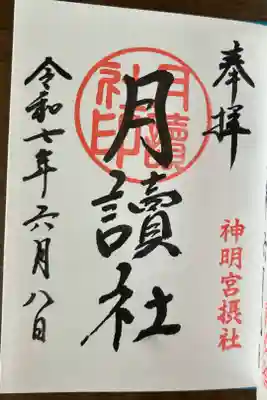 奉拝
神明宮摂社
月讀社
月讀社印
令和七年六月八日